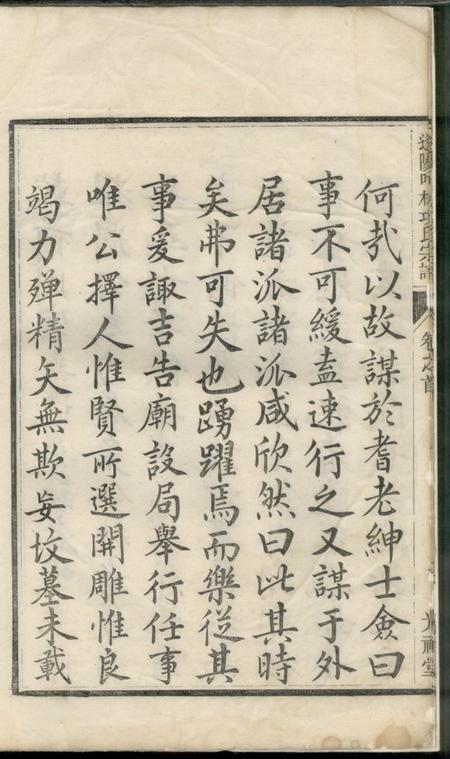 氏宗譜
卷之首
何哉以故謀於耆老紳士僉曰
事不可緩盍速行之又謀于外
居諸派諸派咸欣然曰此其時
矣弗可失也踴躍焉而樂從其
事爰諏吉告廟設局舉行任事
唯公擇人惟賢所選開雕惟良
竭力殫精矢無欺妄坟墓未載